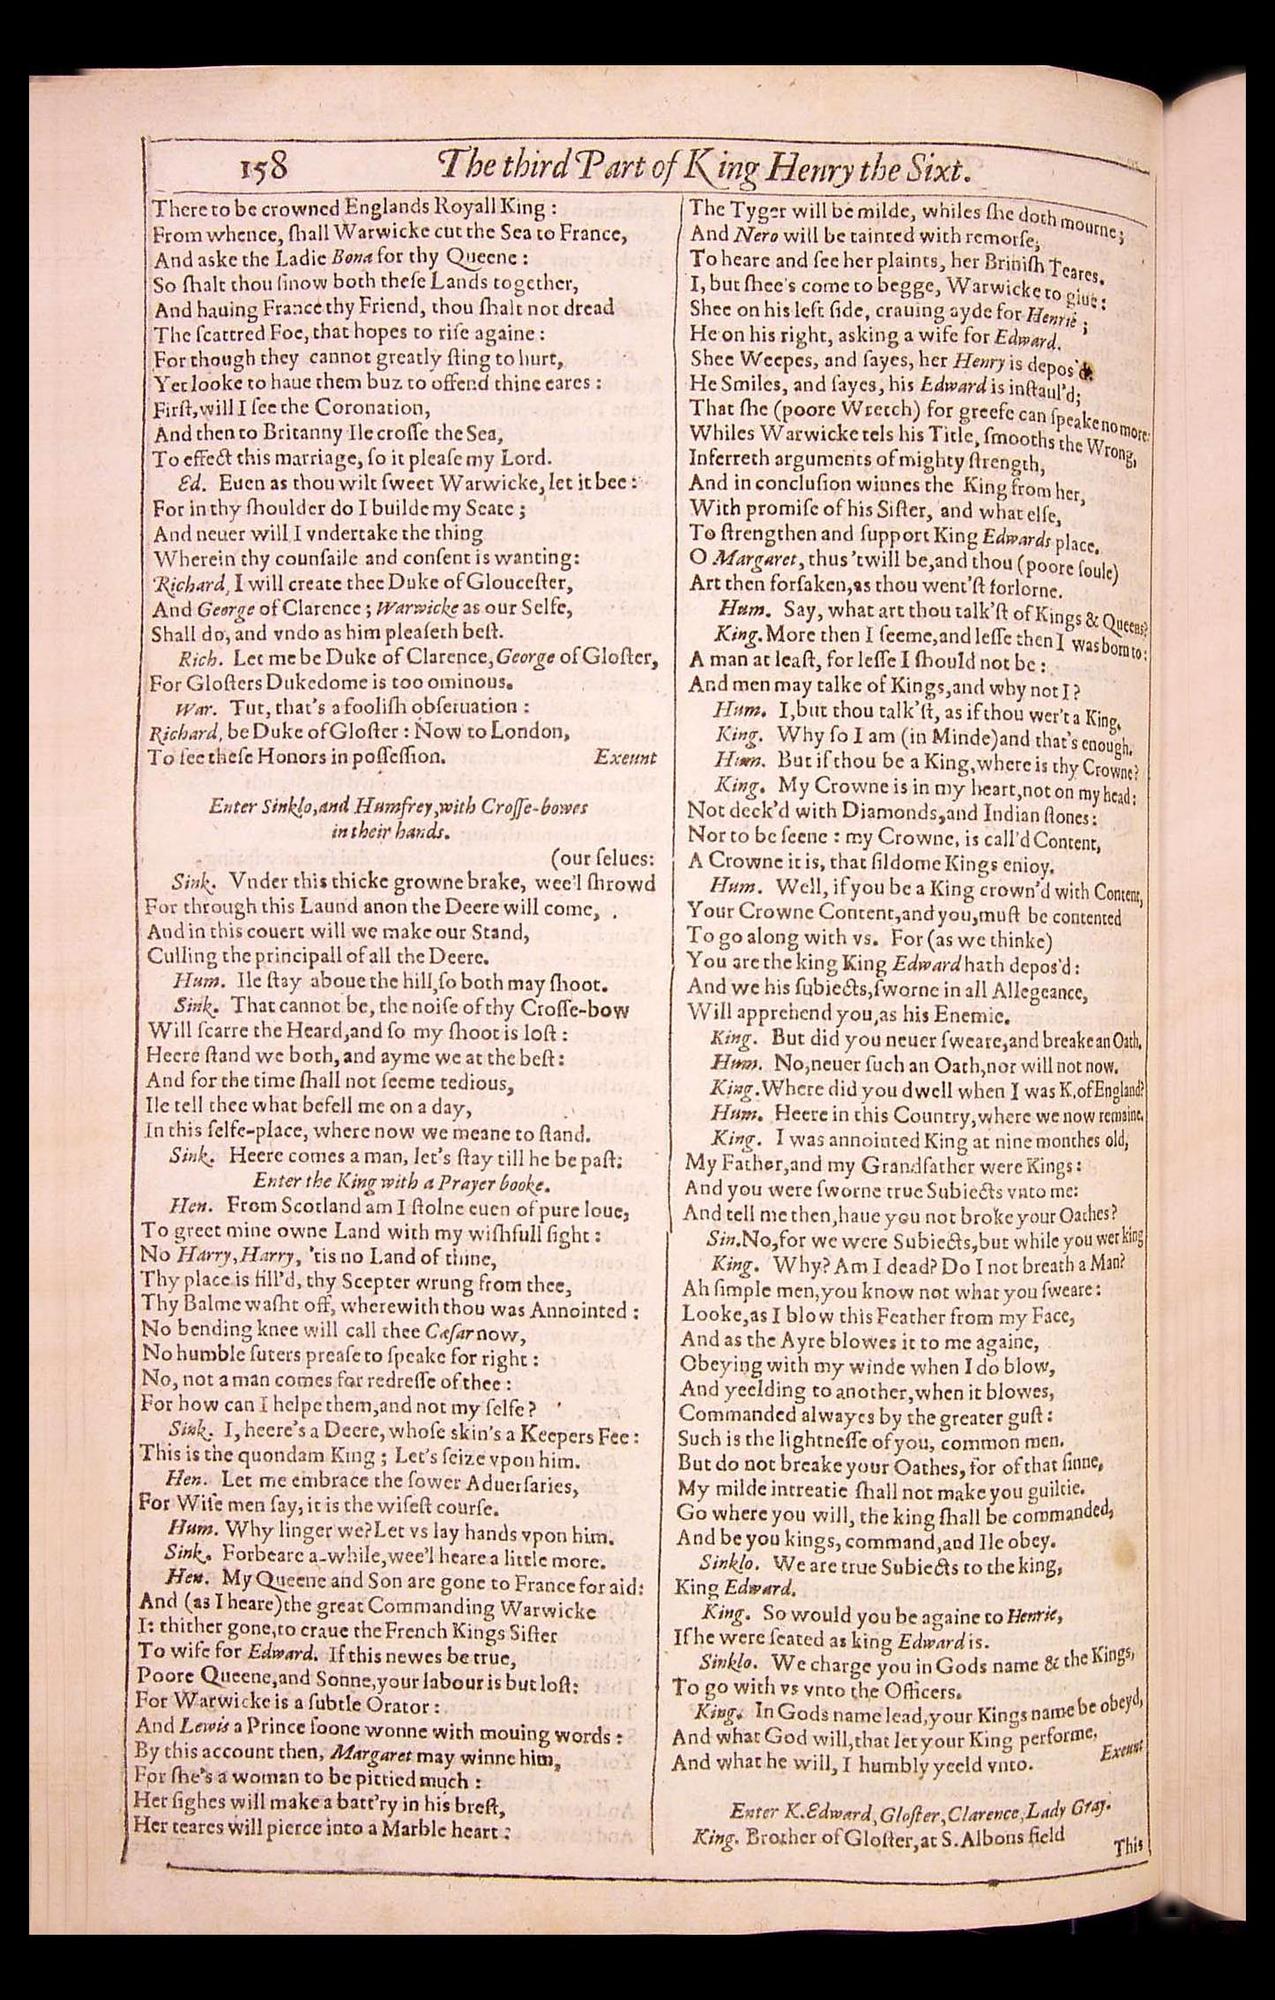 158
The third Part of King Henry the Sixt.
There to be crowned Englands Royall King:
From whence, ſhall Warwicke cut the Sea to France,
And aske the Ladie Bona for thy Queene:
So ſhalt thou ſinow both theſe Lands together,
And hauing France thy Friend, thou ſhalt not dread
The ſcattred Foe, that hopes to riſe againe:
For though they cannot greatly ſting to hurt,
Yet looke to haue them buz to offend thine eares:
Firſt, will I ſee the Coronation,
And then to Britanny Ile croſſe the Sea,
To effect this marriage, ſo it pleaſe my Lord.
Ed. Euen as thou wilt ſweet Warwicke, let it bee:
For in thy ſhoulder do I builde my Seate;
And neuer will I vndertake the thing
Wherein thy counſaile and conſent is wanting:
Richard, I will create thee Duke of Glouceſter,
And George of Clarence; Warwicke as our Selfe,
Shall do, and vndo as him pleaſeth beſt.
Rich. Let me be Duke of Clarence, George of Gloſter,
For Gloſters Dukedome is too ominous.
War. Tut, that's a fooliſh obſeruation:
Richard, be Duke of Gloſter: Now to London,
To ſee theſe Honors in poſſeſſion. Exeunt
Enter Sinklo, and Humfrey, with Croſſe-bowes
in their hands.
(our ſelues:
Sink. Vnder this thicke growne brake, wee'l ſhrowd
For through this Laund anon the Deere will come,
And in this couert will we make our Stand,
Culling the principall of all the Deere.
Hum. Ile ſtay aboue the hill, ſo both may ſhoot.
Sink. That cannot be, the noiſe of thy Croſſe-bow
Will ſcarre the Heard, and ſo my ſhoot is loſt:
Heere ſtand we both, and ayme we at the beſt:
And for the time ſhall not ſeeme tedious,
Ile tell thee what befell me on a day,
In this ſelfe-place, where now we meane to ſtand.
Sink. Heere comes a man, let's ſtay till he be paſt:
Enter the King with a Prayer booke.
Hen. From Scotland am I ſtolne euen of pure loue,
To greet mine owne Land with my wiſhfull ſight:
No Harry, Harry, 'tis no Land of thine,
Thy place is fill'd, thy Scepter wrung from thee,
Thy Balme waſht off, wherewith thou was Annointed:
No bending knee will call thee Cæſar now,
No humble ſuters preaſe to ſpeake for right:
No, not a man comes for redreſſe of thee:
For how can I helpe them, and not my ſelfe?
Sink. I, heere's a Deere, whoſe skin's a Keepers Fee:
This is the quondam King; Let's ſeize vpon him.
Hen. Let me embrace the ſower Aduerſaries,
For Wiſe men ſay, it is the wiſeſt courſe.
Hum. Why linger we? Let vs lay hands vpon him.
Sink. Forbeare a-while, wee'l heare a little more.
Hen. My Queene and Son are gone to France for aid:
And (as I heare) the great Commanding Warwicke
I: thither gone, to craue the French Kings Siſter
To wife for Edward. If this newes be true,
Poore Queene, and Sonne, your labour is but loſt:
For Warwicke is a ſubtle Orator:
And Lewis a Prince ſoone wonne with mouing words:
By this account then, Margaret may winne him,
For ſhe's a woman to be pittied much:
Her ſighes will make a batt'ry in his breſt,
Her teares will pierce into a Marble heart:
The Tyger will be milde, whiles ſhe doth mourne;
And Nero will be tainted with remorſe,
To heare and ſee her plaints, her Briniſh Teares.
I, but ſhee's come to begge, Warwicke to giue:
Shee on his left ſide, crauing ayde for Henrie;
He on his right, asking a wife for Edward.
Shee Weepes, and ſayes, her Henry is depos'd:
He Smiles, and ſayes, his Edward is inſtaul'd;
That ſhe (poore Wretch) for greefe can ſpeake no more:
Whiles Warwicke tels his Title, ſmooths the Wrong,
Inferreth arguments of mighty ſtrength,
And in concluſion winnes the King from her,
With promiſe of his Siſter, and what elſe,
To ſtrengthen and ſupport King Edwards place.
O Margaret, thus 'twill be, and thou (poore ſoule)
Art then forſaken, as thou went'ſt forlorne.
Hum. Say, what art thou talk'ſt of Kings & Queens?
King. More then I ſeeme, and leſſe then I was born to:
A man at leaſt, for leſſe I ſhould not be:
And men may talke of Kings, and why not I?
Hum. I, but thou talk'ſt, as if thou wer't a King.
King. Why ſo I am (in Minde) and that's enough.
Hum. But if thou be a King, where is thy Crowne?
King. My Crowne is in my heart, not on my head:
Not deck'd with Diamonds, and Indian ſtones:
Nor to be ſeene: my Crowne, is call'd Content,
A Crowne it is, that ſildome Kings enioy.
Hum. Well, if you be a King crown'd with Content,
Your Crowne Content, and you, muſt be contented
To go along with vs. For (as we thinke)
You are the king King Edward hath depos'd:
And we his ſubiects, ſworne in all Allegeance,
Will apprehend you, as his Enemie.
King. But did you neuer ſweare, and breake an Oath.
Hum. No, neuer ſuch an Oath, nor will not now.
King. Where did you dwell when I was K. of England?
Hum. Heere in this Country, where we now remaine.
King. I was annointed King at nine monthes old,
My Father, and my Grandfather were Kings:
And you were ſworne true Subiects vnto me:
And tell me then, haue you not broke your Oathes?
Sin. No, for we were Subiects, but while you wer king
King. Why? Am I dead? Do I not breath a Man?
Ah ſimple men, you know not what you ſweare:
Looke, as I blow this Feather from my Face,
And as the Ayre blowes it to me againe,
Obeying with my winde when I do blow,
And yeelding to another, when it blowes,
Commanded alwayes by the greater guſt:
Such is the lightneſſe of you, common men.
But do not breake your Oathes, for of that ſinne,
My milde intreatie ſhall not make you guiltie.
Go where you will, the king ſhall be commanded,
And be you kings, command, and Ile obey.
Sinklo. We are true Subiects to the king,
King Edward.
King. So would you be againe to Henrie,
If he were ſeated as king Edward is.
Sinklo. We charge you in Gods name & the Kings,
To go with vs vnto the Officers.
King. In Gods name lead, your Kings name be obeyd,
And what God will, that let your King performe,
And what he will, I humbly yeeld vnto. Exeunt
Enter K. Edward, Gloſter, Clarence, Lady Gray.
King. Brother of Gloſter, at S. Albons field
This